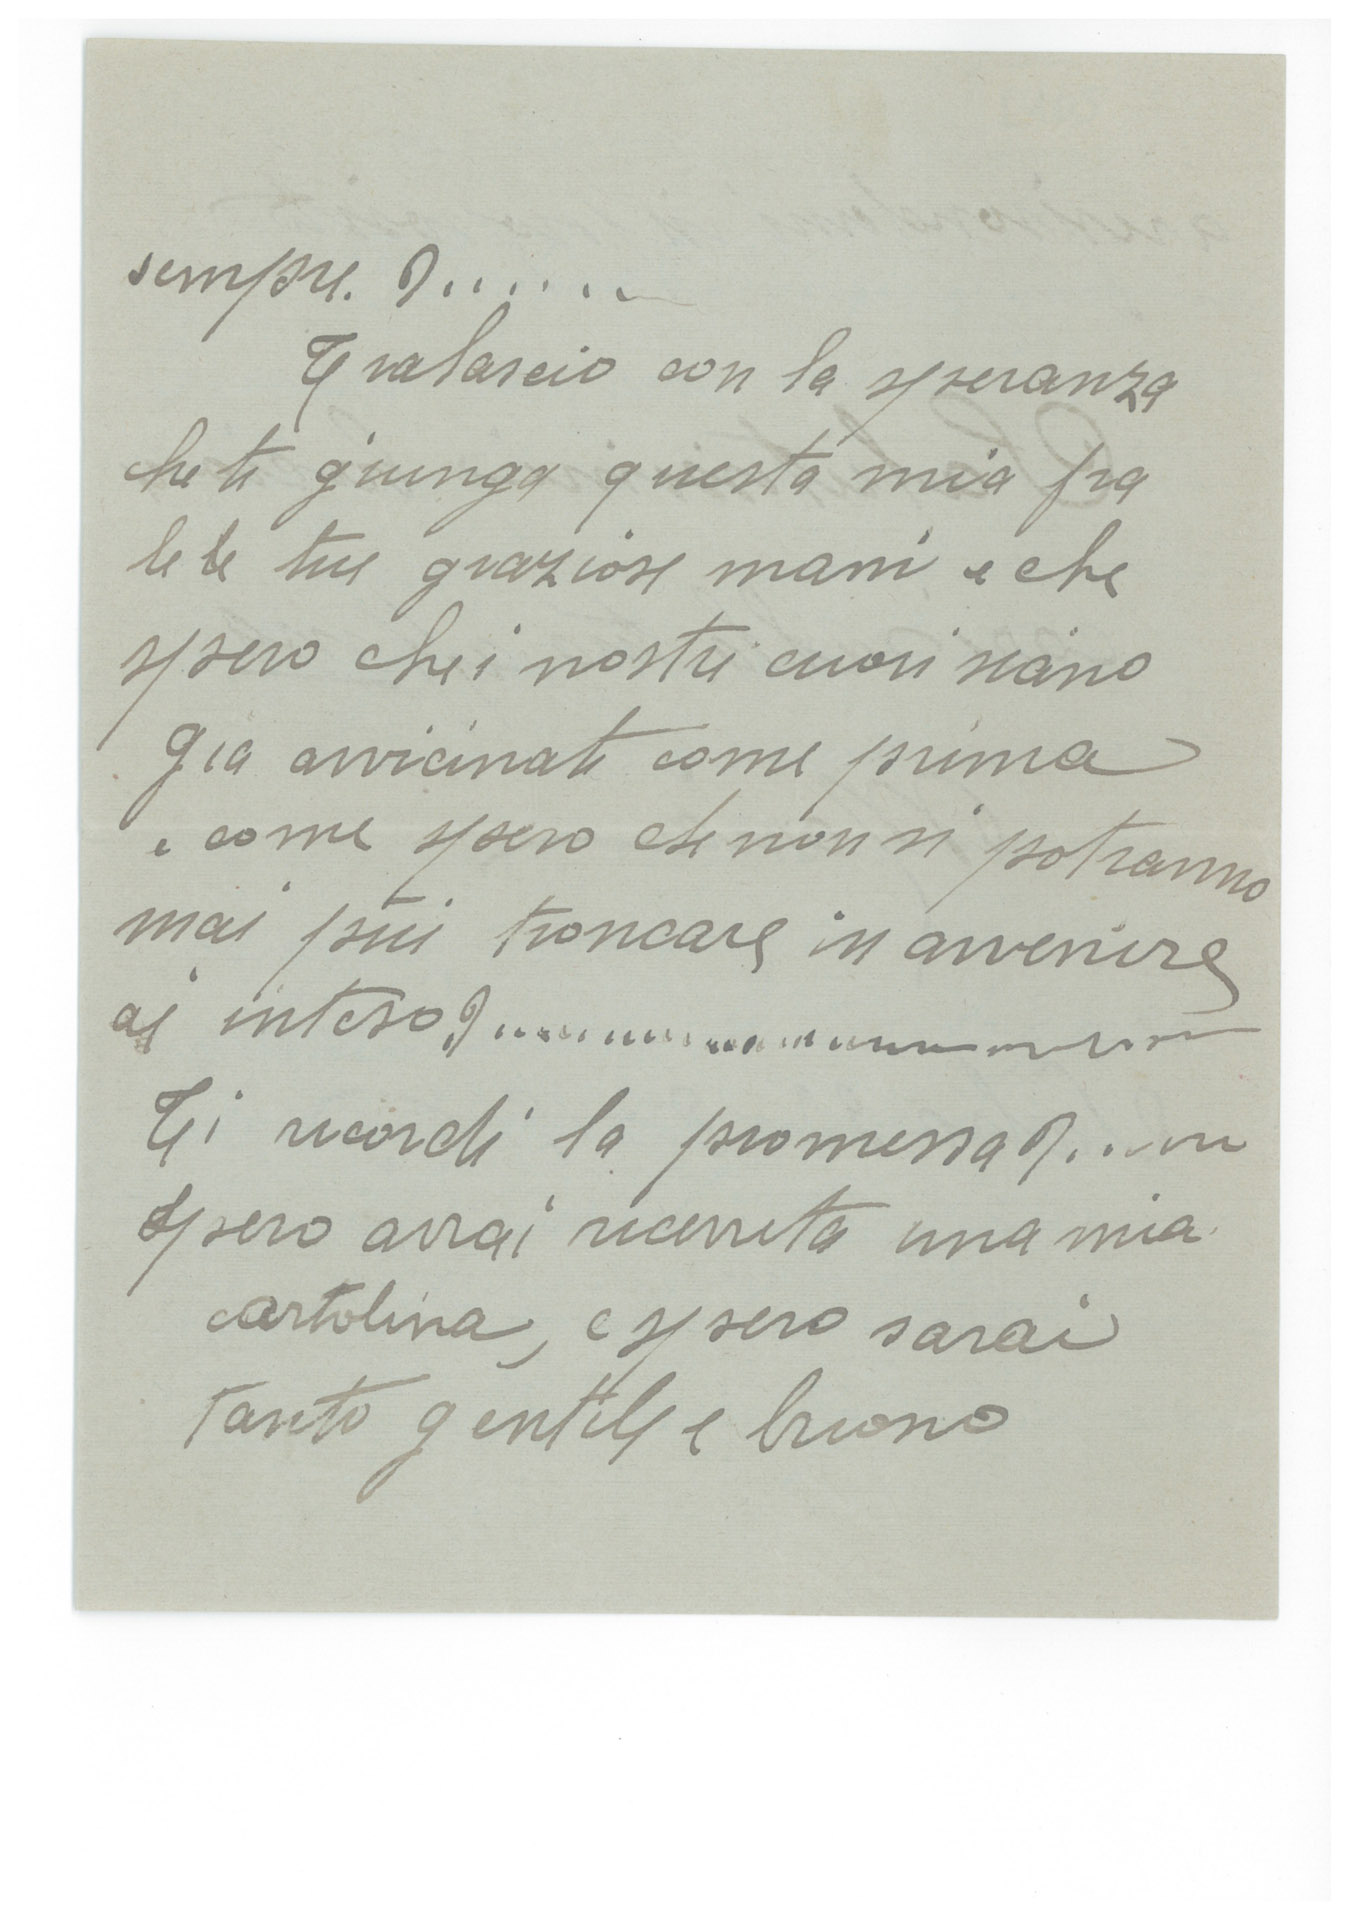 sempre. ?......
Tralascio con la speranza
che ti giunga questa mia fra
le le tue graziose mani e che
spero che i nostri cuori siano
gia avvicinati come prima
e come spero che non si potranno
mai più troncare in avvenire
ai inteso?..............
Ti ricordi la promessa?.....
Spero avrai ricevuta una mia
cartolina, e spero sarai
tanto gentile e buono